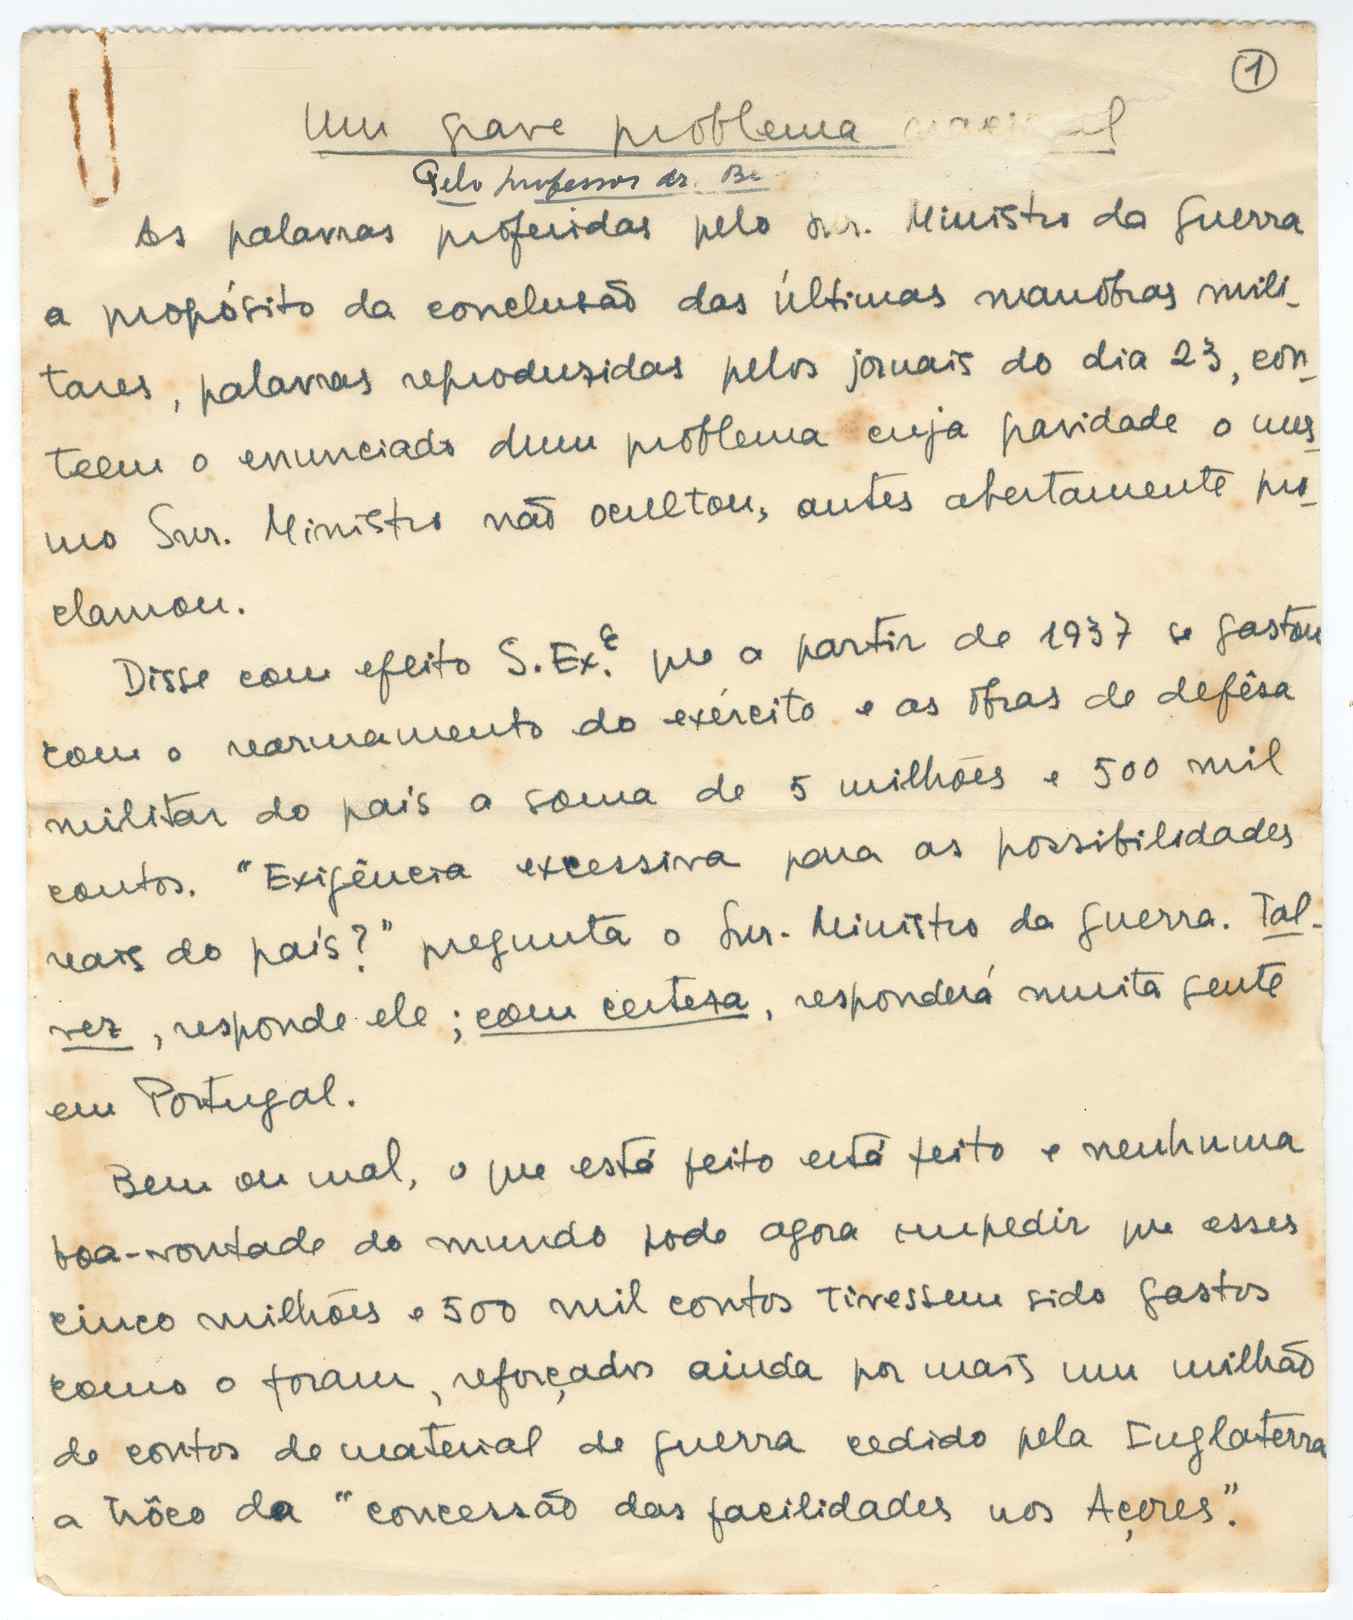 1
Um grave problema
Pelo professor dr. Be
As palavras proferidas pelo Snr. Ministro da Guerra
a propósito da conclusão das últimas manobras mili-
tares, palavras reproduzidas pelos jornais do dia 23, con-
teem o enunciado dum problema cuja gravidade o mes-
mo Snr. Ministro não ocultou, antes abertamente pro-
clamou.
Disse com efeito S. Ex.ª que a partir de 1937 se gastou
com o rearmamento do exército e as obras de defêsa
militar do país a soma de 5 milhões e 500 mil
contos. "Exigência excessiva para as possibilidades
reais do país?" pregunta o Snr. Ministro da Guerra. Tal-
vez, responde ele; com certeza, responderá muita gente
em Portugal.
Bem ou mal, o que está feito está feito e nenhuma
boa-vontade do mundo pode agora impedir que esses
cinco milhões e 500 mil contos tivessem sido gastos
como o foram, reforçados ainda por mais um milhão
de contos de material de guerra cedido pela Inglaterra
a trôco da "concessão das facilidades nos Açores".